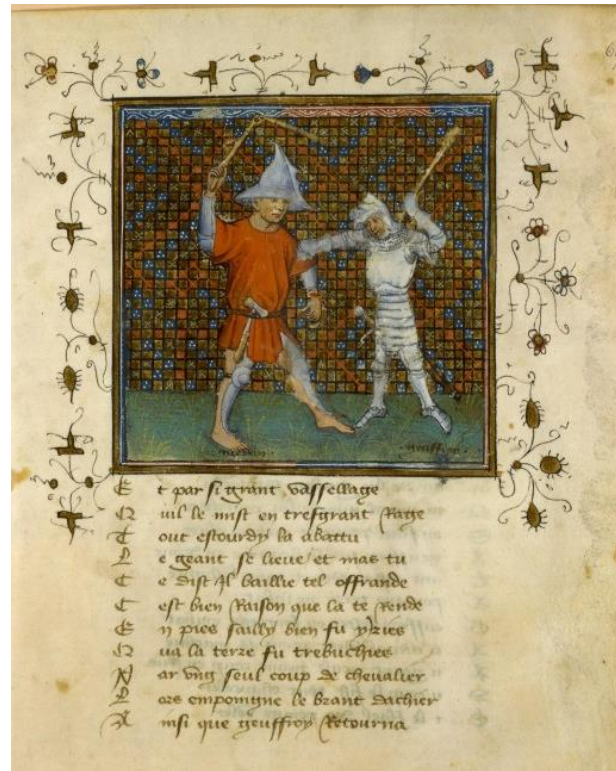 Et par si grant vassellage
Quil le mist en tresgrant Rage
Tout estourdy la abattu
Le geant se lieue et mas tu
Ce dist Il baillie tel offrande
Cest bien Raison que la te Rende
En pies sailly bien fu yries
Qua la terre fu trebuchies
Par vng seul coup de cheualier
Lors empoingne le brant dachier
Ainsi que geuffroy Retourna